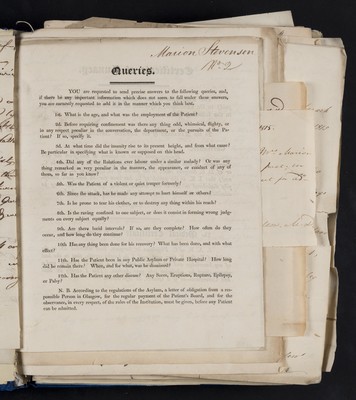 Marion Stevenson
No 2
Queries.
YOU are requested to send precise answers to the following queries, and,
if there be any important information which does not seem to fall under these answers,
you are earnestly requested to add it in the manner which you think best.
1st. What is the age, and what was the employment of the Patient?
2d. Before requiring confinement was there any thing odd, whimsical, flighty, or
in any respect peculiar in the conversation, the deportment, or the pursuits of the Pa-
tient? If so, specify it.
3d. At what time did the insanity rise to its present height, and from what cause?
Be particular in specifying what is known or supposed on this head.
4th. Did any of the Relations ever labour under a similar malady? Or was any
thing remarkable or very peculiar in the manners, the appearance, or mindset of any of
them, so far as you know?
5th. Was the Patient of a violent or quiet temper formerly?
6th. Since the attack, has he made any attempt to hurt himself or others?
7th. Is he prone to tear his clothes, or to destroy any thing within his reach?
8th. Is the raving confined to one subject, or does it consist in forming wrong judg-
ments on every subject equally?
9th. Are there lucid intervals? If so, are they complete? How often do they
occur, and how long do they continue?
10th Has any thing been done for his recovery? What has been done, and with what
effect?
11th. Has the Patient been in any Public Asylum or Private Hospital? How long
did he remain there? When, and for what, was he dismissed?
12th. Has the Patient any other disease? Any Sores, Eruptions, Rupture, Epilepsy,
or Palsy?
N. B. According to the regulations of the Asylum, a letter of obligation from a res-
ponsible Person in Glasgow, for the regular payment of the Patient's Board, and for the
observance, in every respect, of the rules of the Institution, must be given, before any Patient
can be admitted.